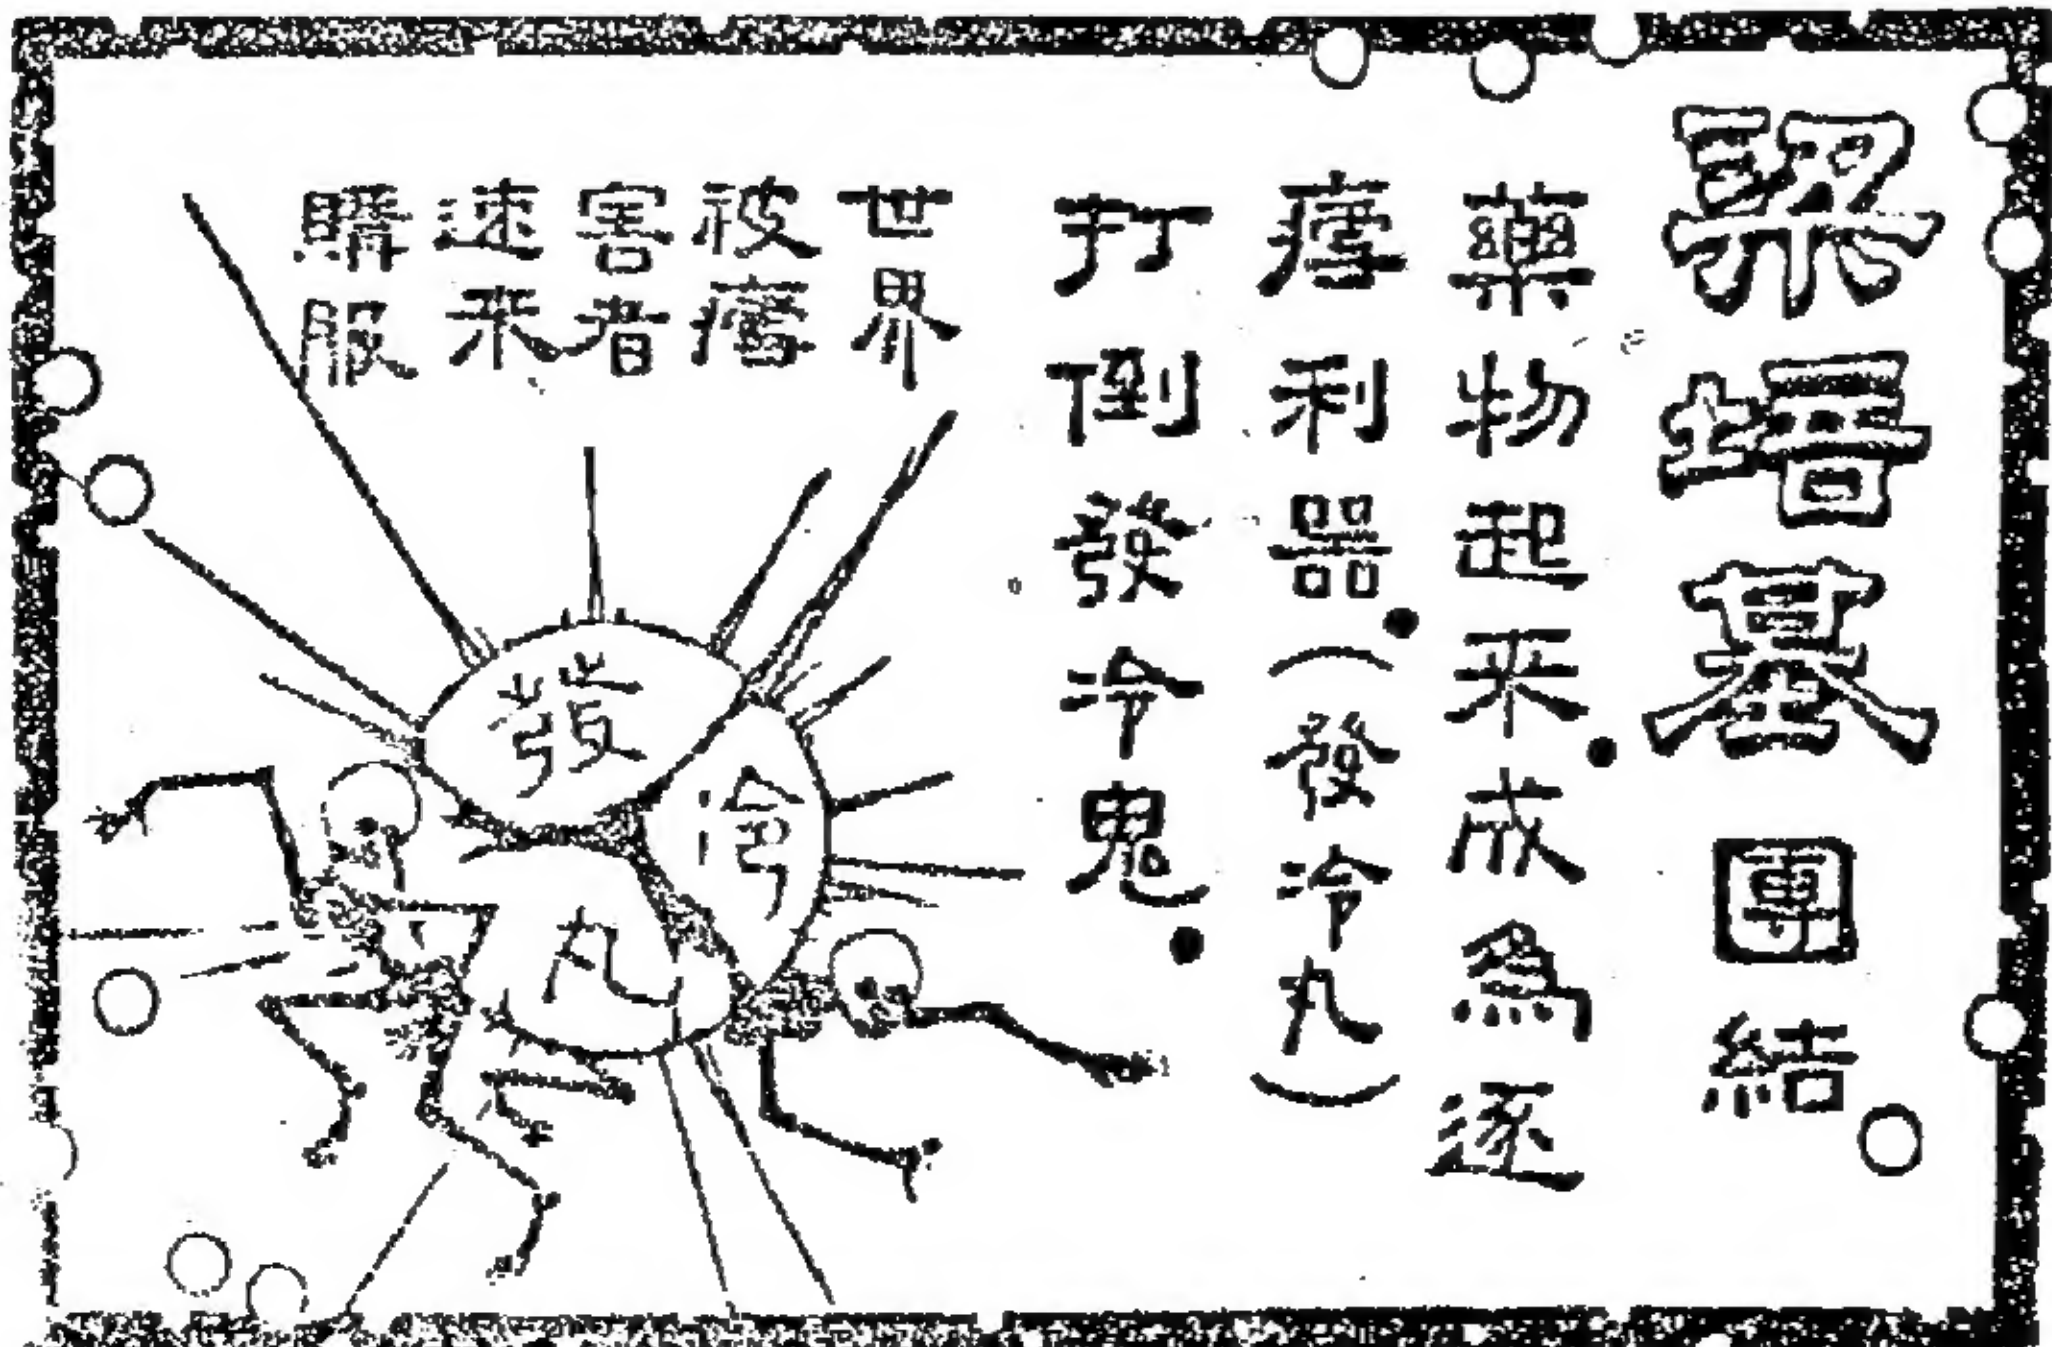 梁培基團結
藥物起来成為逐
瘧利器(發冷丸)
打倒發冷鬼)
世界
被瘧
害者
速来
購服
發
冷
丸